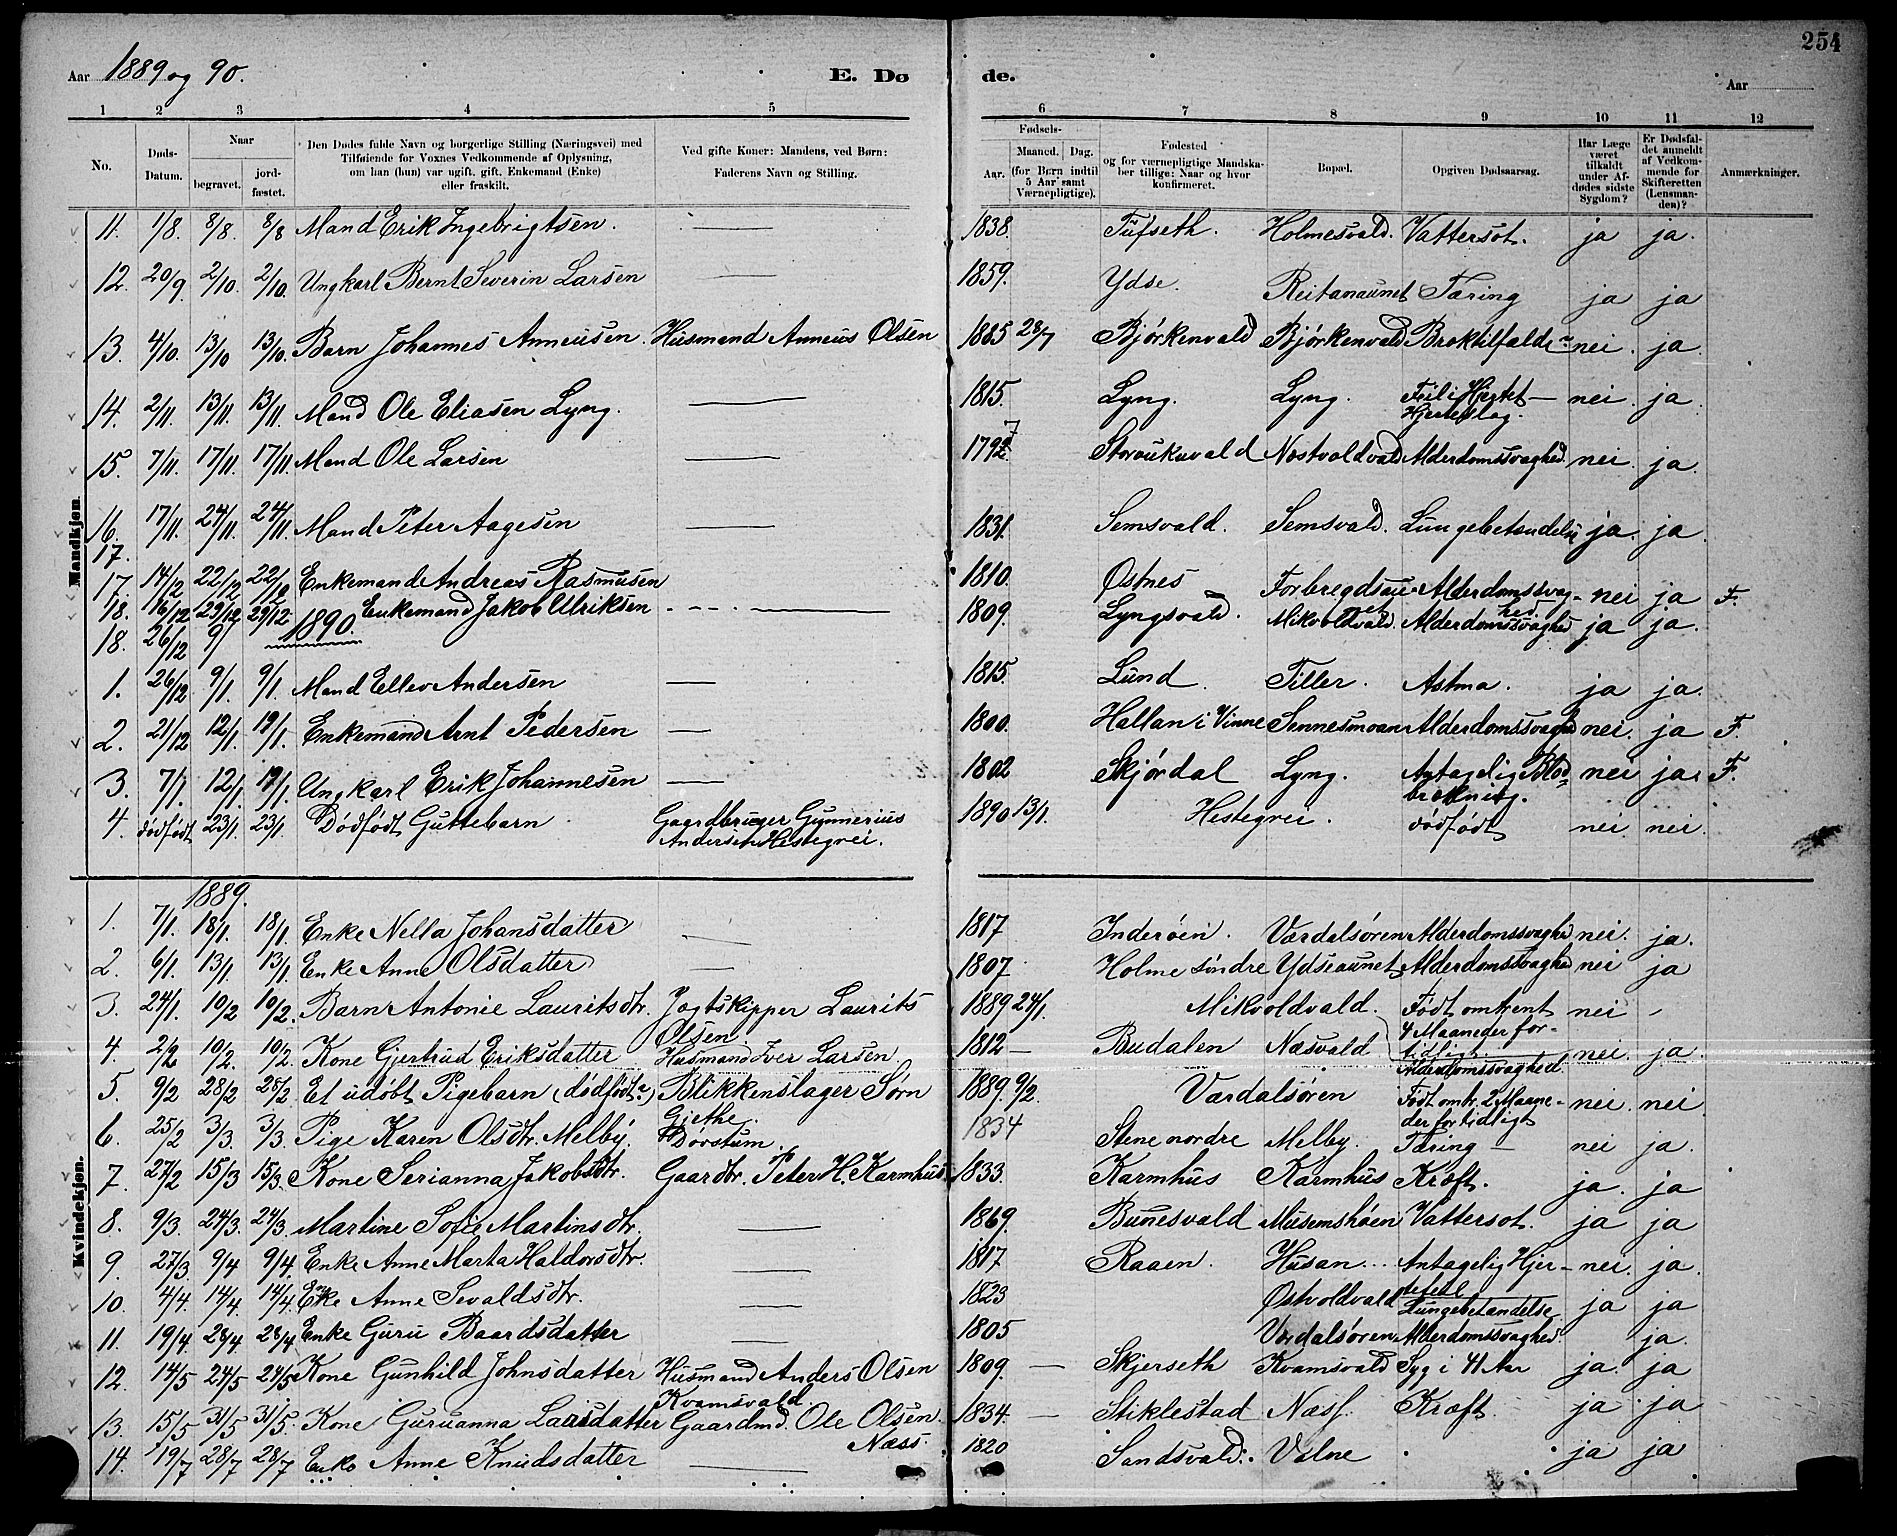 254
Aar 1889 og 90. E. Dø de. Aar
1 2 3 4 5 6 7 8 9 10 11 12
No. Døds-Datum. Naar begravet. jord-fæstet. Den Dødes fulde Navn og borgerlige Stilling (Næringsvei) med Tilføiende for Voxnes Vedkommende af Oplysning, om han (hun) var ugift, gift, Enkemand (Enke) eller fraskilt. Ved gifte Koner: Mandens, ved Børn: Faderens Navn og Stilling. Fødsels- Aar. Maaned. Dag. (for Børn indtil 5 Aar samt Værnepligtige). Fødested og for værnepligtige Mandska-ber tillige: Naar og hvor konfirmeret. Bopæl. Opgiven Dødsaarsag. Har Læge været tilkaldt under Af-dødes sidste Sygdom? Er Dødsfal-det anmeldt af Vedkom-mende for Skifteretten (Lensman-den)? Anmærkninger.
Mandkjøn.
11. 1/8. 8/8. 8/8 Mand Erik Ingebrigtsen. 1838. Tufseth. Holmesvald. Vattersot. ja ja.
12. 20/9 2/10. 2/10. Ungkarl Bernt Severin Larsen 1859. Ydse. Reitanaunet Tæring ja ja
13. 4/10. 13/10 13/10. Barn Johannes Anneusen. Husmand Anneus Olsen 1885 28/7 Bjørkenvald Bjørkenvald Broktilfælde nei. ja.
14. 2/11. 13/11. 13/11. Mand Ole Eliasen Lyng. 1815. Lyng. Lyng. Feil i Hjertet - Hjerteslag. nei. ja.
15. 7/11. 17/11. 17/11. Mand Ole Larsen 1792 7 Storvukuvald Næstvoldvald Alderdomssvaghed. nei. ja.
16. 17/11. 24/11. 24/11. Mand Peter Aagesen 1831. Semsvald. Semsvald. Lungebetændelse ja. ja.
17.
17. 14/12 22/12 22/12 Enkemand Andreas Rasmusen 1810. Østnes Forbregdsau-et Alderdomssvag-hed nei ja F.
18. 16/12 29/12 29/12 Enkemand Jakob Ulriksen 1809. Lyngsvald. Mikvoldvald. Alderdomssvaghed ja ja.
18. 26/12 9/ 1890.
1. 26/12 9/1. 9/1. Mand Ellev Andersen 1815. Lund. Tiller. Astma. ja ja.
2. 21/12 12/1. 12/1. Enkemand Arnt Pedersen 1800. Hallan i Vinne Sennesmoan Alderdomssvaghed nei. ja F.
3. 7/1. 12/1. 12/1. Ungkarl Erik Johannesen 1802 Skjørdal Lyng. Antagelig Blod-brækning. nei ja. F.
4. dødfødt 23/1. 23/1. Dødfødt Guttebarn Gaardbruger Gunnerius Andersen Hestegrei. 1890 13/1. Hestegrei. dødfødt nei nei.
Kvindekjøn.
1889.
1. 7/1. 18/1. 18/1. Enke Nella Johansdatter 1817 Inderøen. Værdalsøren Alderdomssvaghed nei. ja.
2. 6/1. 13/1 13/1 Enke Anne Olsdatter 1807 Holme søndre Ydseaunet Alderdomssvaghed nei ja
3. 24/1. 10/2 10/2. Barn Antonie Lauritsdtr. Jagtskipper Laurits Olsen. 1889 24/1. Mikvoldvald. Født omtrent 4 Maaneder for-tidlig. nei
4. 2/2 10/2. 10/2. Kone Gjertrud Eriksdatter Husmand Iver Larsen. 1812 - Budalen Næsvald Alderdomssvaghed nei. ja.
5. 9/2 28/2 28/2. Et udøbt Pigebarn (dødfødt.) Blikkenslager Sørn Gjethe. 1889. 9/2. Værdalsøren Født omtr. 2 Maane-der for tidligt nei. nei
6. 25/2 3/3. 3/3. Pige Karen Olsdtr. Melby. Dørstum. 1834 Stene nordre Melby. Tæring - nei ja.
7. 27/2 15/3 15/3. Kone Serianna Jakobsdtr. Gaardbr. Peter H. Karmhus 1833. Karmhus Karmhus Kræft. ja. ja
8. 9/3 24/3. 24/3. Martine Sofie Martinsdtr. 1869. Bunesvald Musemshøen Vattersot. ja ja
9. 27/3. 9/4 9/4. Enke Anne Marta Haldorsdtr. 1817 Raaen. Husan Antagelig Hjer-tefeil nei. ja.
10. 4/4. 14/4. 14/4. Enke Anne Sevaldsdtr. 1823 Østvoldvald Lungebetændelse ja ja
11. 19/4. 28/4 28/4 Enke Guru Baardsdatter 1805 Værdalsøren Alderdomssvaghed. ja.
12. 14/5 24/5 24/5 Kone Gunhild Johnsdatter Husmand Anders Olsen Kvamsvald. 1809. - Skjerseth Kvamsvald Syg i 41 Aar ja. ja
13. 15/5 31/5 31/5. Kone Guruanna Lausdatter Gaardmd. Ole Olsen Næss. 1834. - Stiklestad Næss. Kræft. ja ja
14. 19/7 28/7 28/7 Enke Anne Knudsdatter 1820 Sandsvald. Valne ja ja